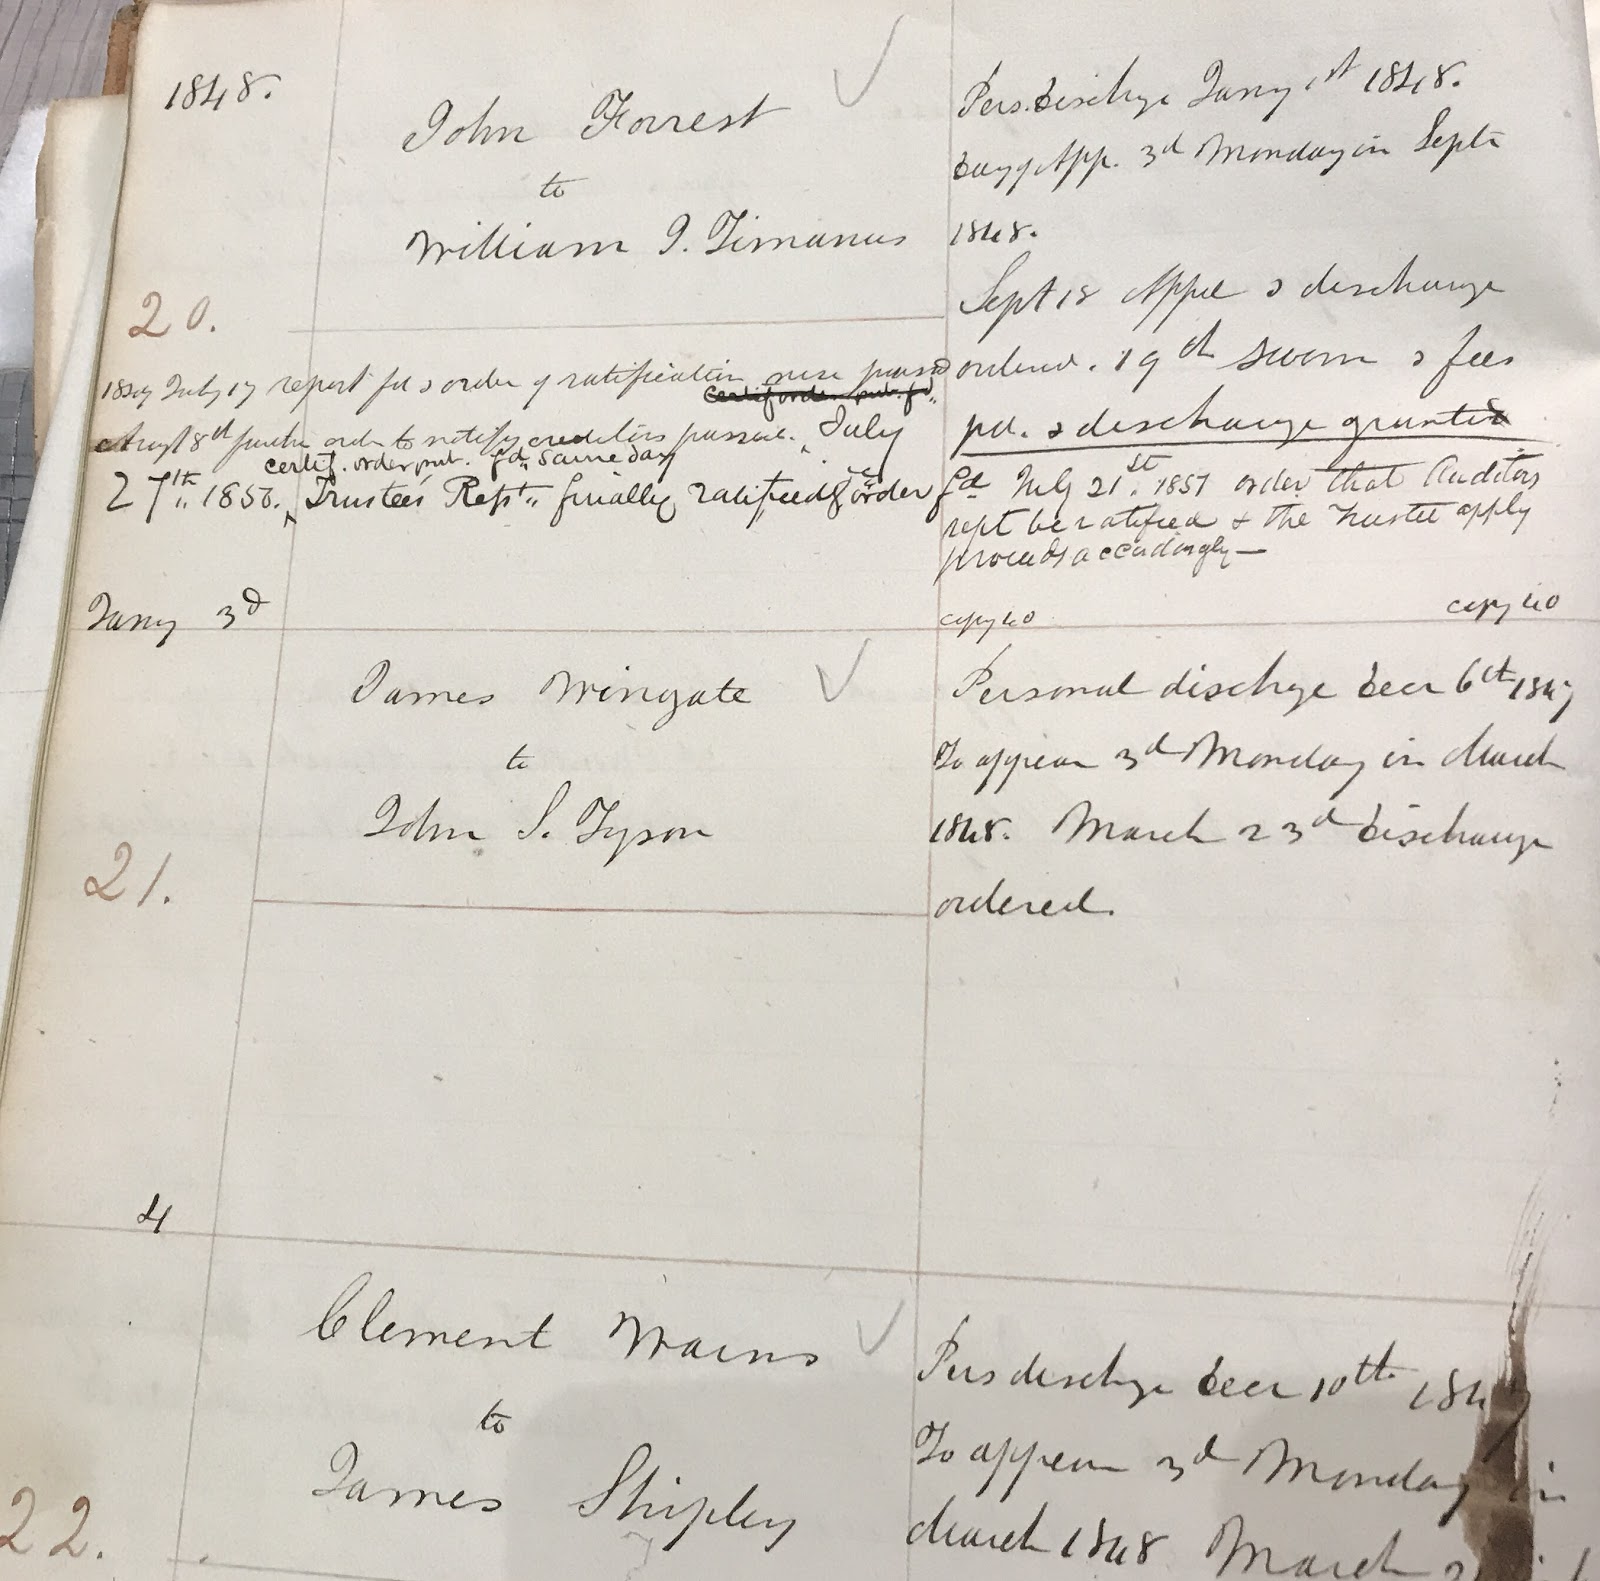 1848.
John Forrest
to
William J. Timanus
20.
Pers. Dischge Jany 1st 1848.
Day of App. 3d Monday in Sept
1848.
Sept 18 Appd & discharge
ordered. 19th sworn & fees
pd. & discharge granted
July 17 report fd & order of ratification nisi passed
certif order pub. fd.
Augt 8th further order to notify creditors passed. July
certif. order pub. fd. same day
27th. 1858. Trustee's Rept. finally ratified & order
fd July 21st. 1857 order that Auditors
rept be ratified & the Trustee apply
proceeds accordingly—
copy 40
copy 40
Jany 3d
James Wingate
to
John S. Tyson
21.
Personal dischge Decr 6th 1847
To appear 3d Monday in March
1848. March 23d Discharge
ordered.
4
Clement Mains
to
James Shipley
22.
Pers dischge Decr 10th 184
To appear 3d Monday in
March 1848 March